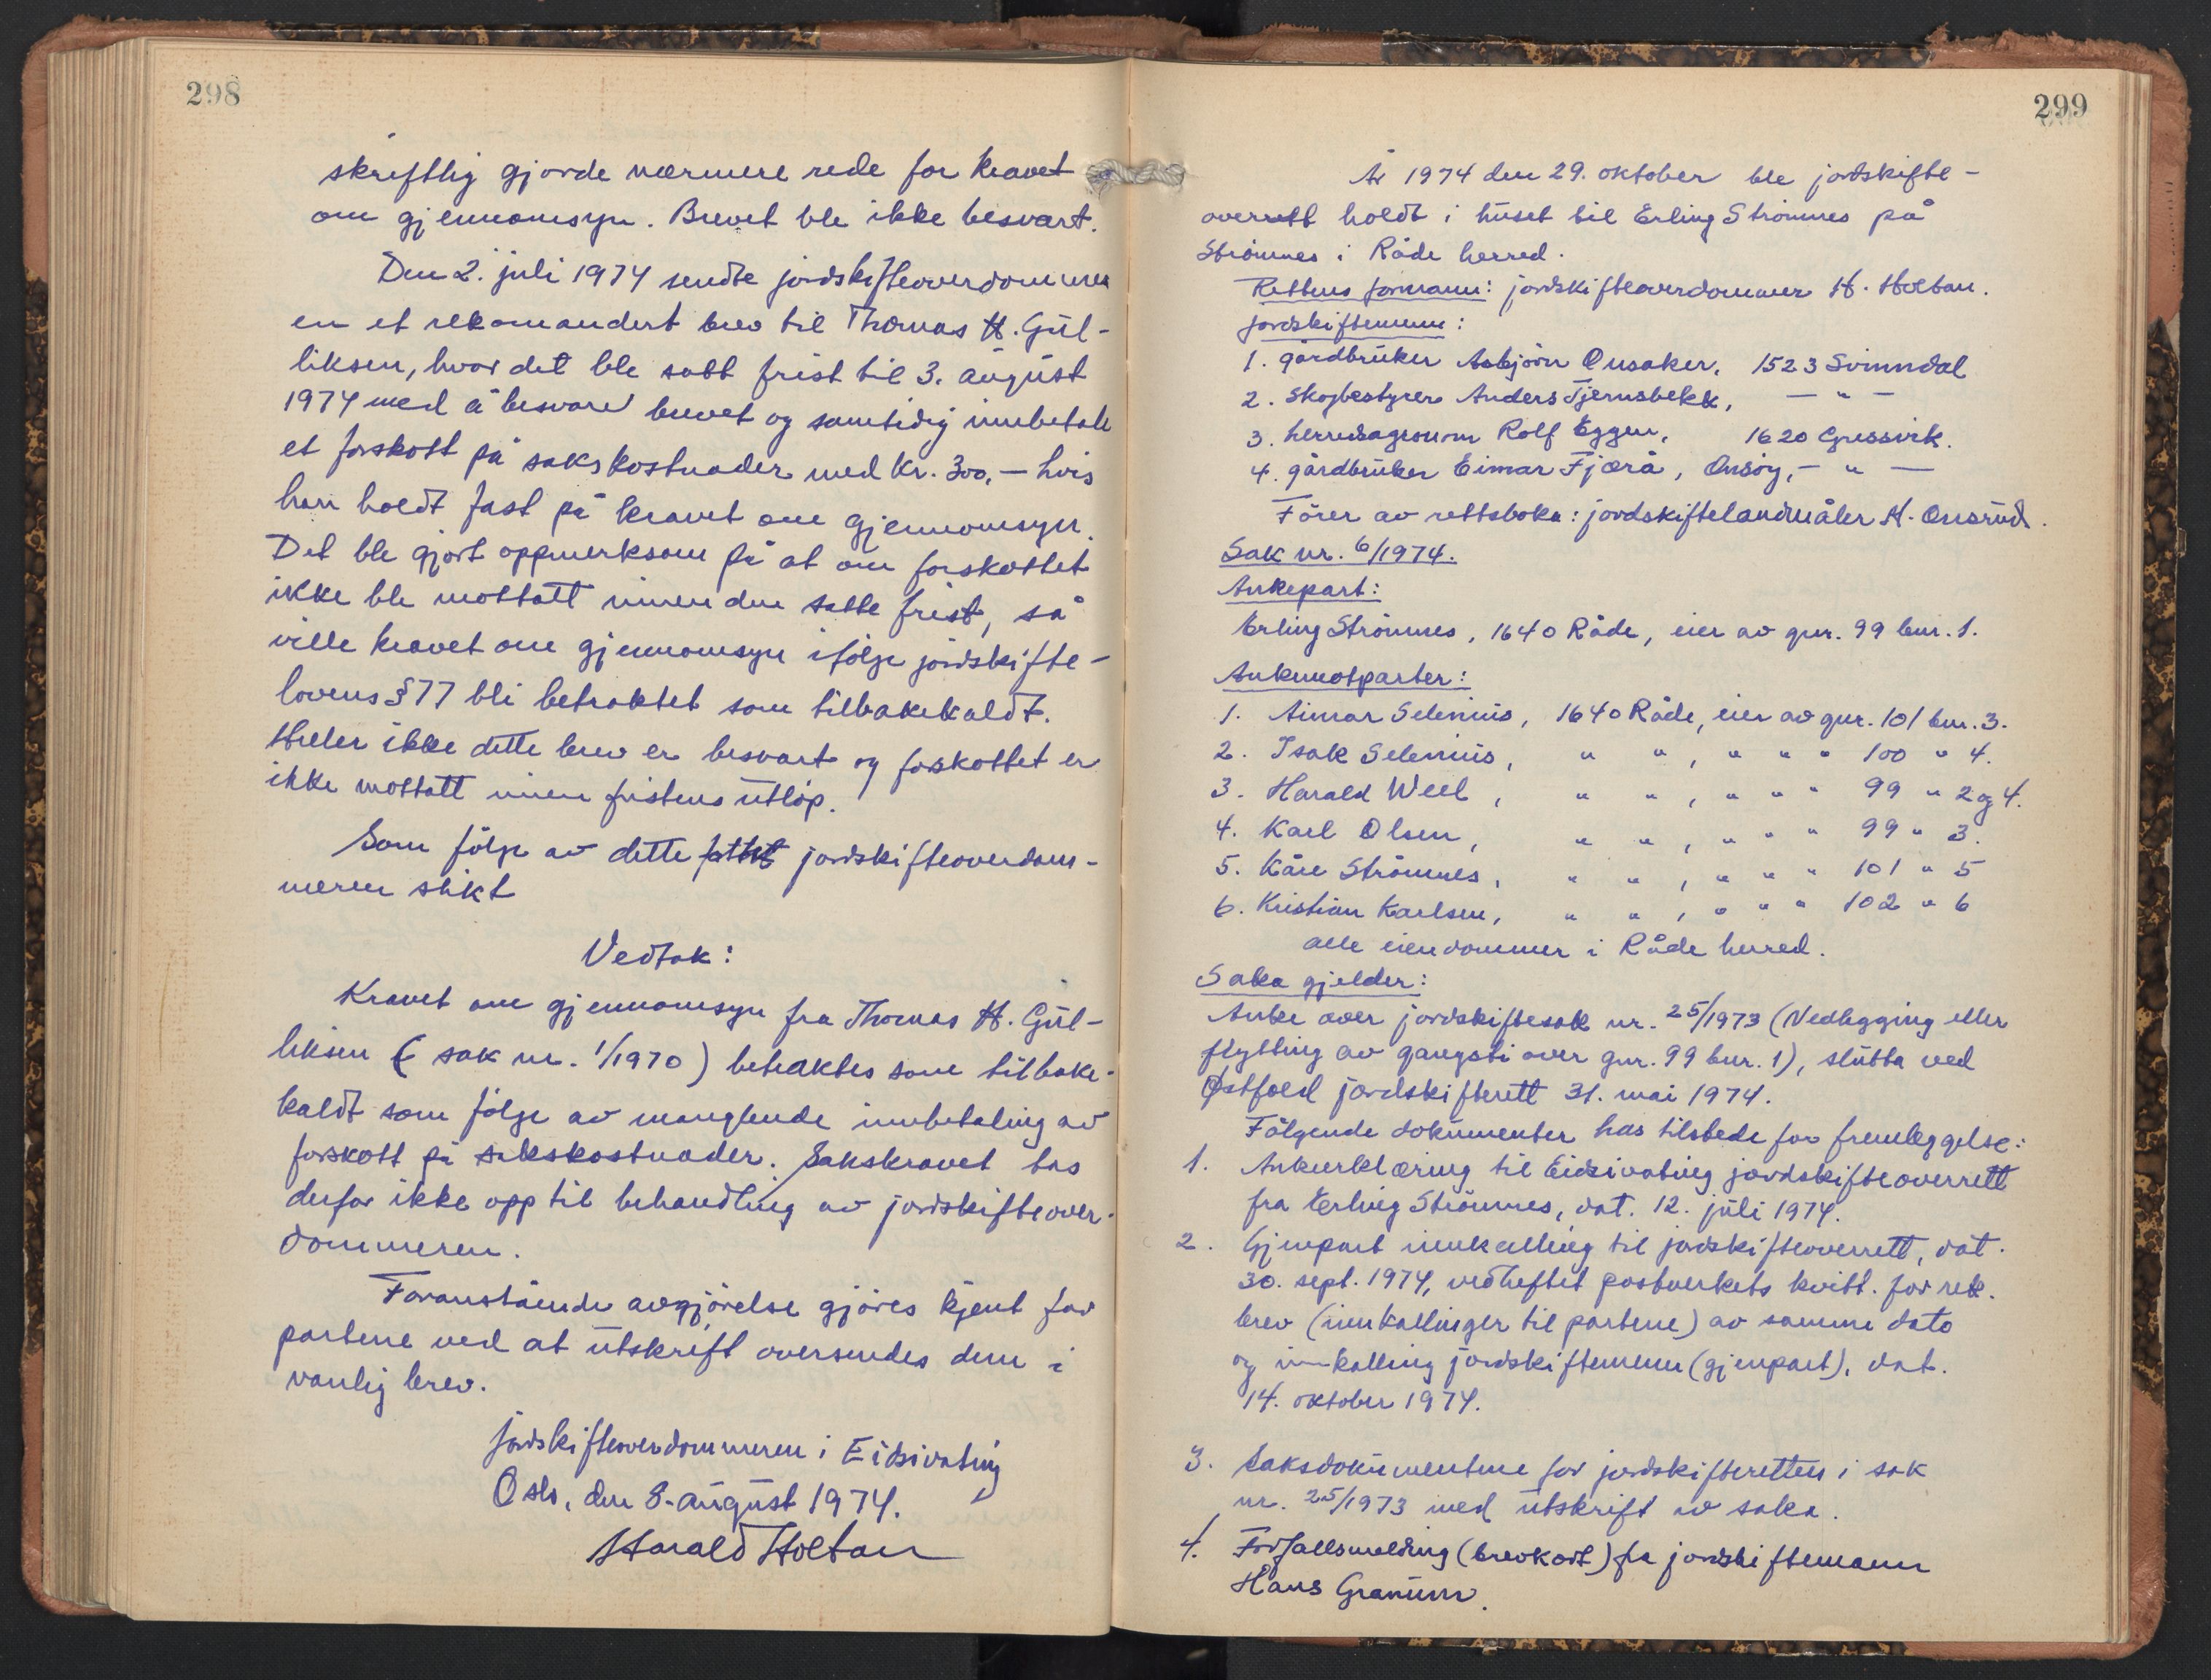 298
skriftlig gjorde nærmere rede for kravet
om gjennomsyn. Brevet ble ikke besvart.
Den 2. juli 1974 sendte jordskifteoverdommer
en et rekomandert brev til Thomas H. Gul-
liksen, hvor det ble satt frist til 3. august
1974 med å besvare brevet og samtidig innbetale
et forskott på sakskostnader med kr. 300,- hvis
han holdt fast på kravet om gjennomsyn.
Det ble gjort oppmerksom på at om forskottet
ikke ble mottatt innen den satte frist, så
ville kravet om gjennomsyn ifølge jordskifte-
lovens § 77 bli betraktet som tilbakekaldt.
Heller ikke dette brev er besvart og forskottet er
ikke mottatt innen fristens utløp.
Som følge av dette fattet jordskifteoverdom-
meren slikt
Vedtak:
Kravet om gjennomsyn fra Thomas H. Gul-
liksen (sak nr. 1/1970) betraktes som tilbake-
kaldt som følge av manglende innbetaling av
forskott på sakskostnader. Sakskravet tas
derfor ikke opp til behandling av jordskifteover-
dommeren.
Foranstående avgjørelse gjøres kjent for
partene ved at utskrift oversendes dem i
vanlig brev.
Jordskifteoverdommeren i Eidsivating
Oslo, den 8. august 1974.
Harald Holtan
299
År 1974 den 29. oktober ble jordskifte-
overrett holdt i huset til Erling Strömnes på
Strömnes i Råde herred.
Rettens formann: jordskifteoverdommer H. Holtan.
Jordskiftemenn:
1. gårdbruker Asbjörn Onsaker, 1523 Svinndal
2. Skogbestyrer Anders Tjernsbekk, - " -
3. herredsagronom Rolf Eggen, 1620 Gressvik.
4. gårdbruker Eimar Fjærå, Onsøy, - " -
Förer av rettsboka: jordskiftelandmåler H. Onsrud.
Sak nr. 6/1974.
Ankepart:
Erling Strömnes, 1640 Råde, eier av gnr. 99 bnr. 1.
Ankemotparter:
1. Aimar Selenius, 1640 Råde, eier av gnr. 101 bnr. 3.
2. Isak Selenius, " " , " " " 100 " 4.
3. Harald Weel, " " , " " " 99 " 2 og 4.
4. Karl Olsen, " " , " " " 99 " 3.
5. Kåre Strömnes, " " , " " " 101 " 5
6. Kristian Karlsen, " " , " " " 102 " 6
alle eiendommer i Råde herred.
Saka gjelder:
Anke over jordskiftesak nr. 25/1973 (Nedlegging eller
flytting av gangsti over gnr. 99 bnr. 1), slutta ved
Østfold jordskifterett 31. mai 1974.
Fölgende dokumenter has tilstede for fremleggelse:
1. Ankeerklæring til Eidsivating jordskifteoverrett
fra Erling Strömnes, dat. 12. juli 1974.
2. Gjenpart innkalling til jordskifteoverrett, dat.
30. sept. 1974, vedheftet postverkets kvitt. for rek.
brev (innkallinger til partene) av samme dato
og innkalling jordskiftemenn (gjenpart), dat.
14. oktober 1974.
3. Saksdokumentene for jordskifteretten i sak
nr. 25/1973 med utskrift av saka.
4. Forfallsmelding (brevkort) fra jordskiftemann
Hans Granum.